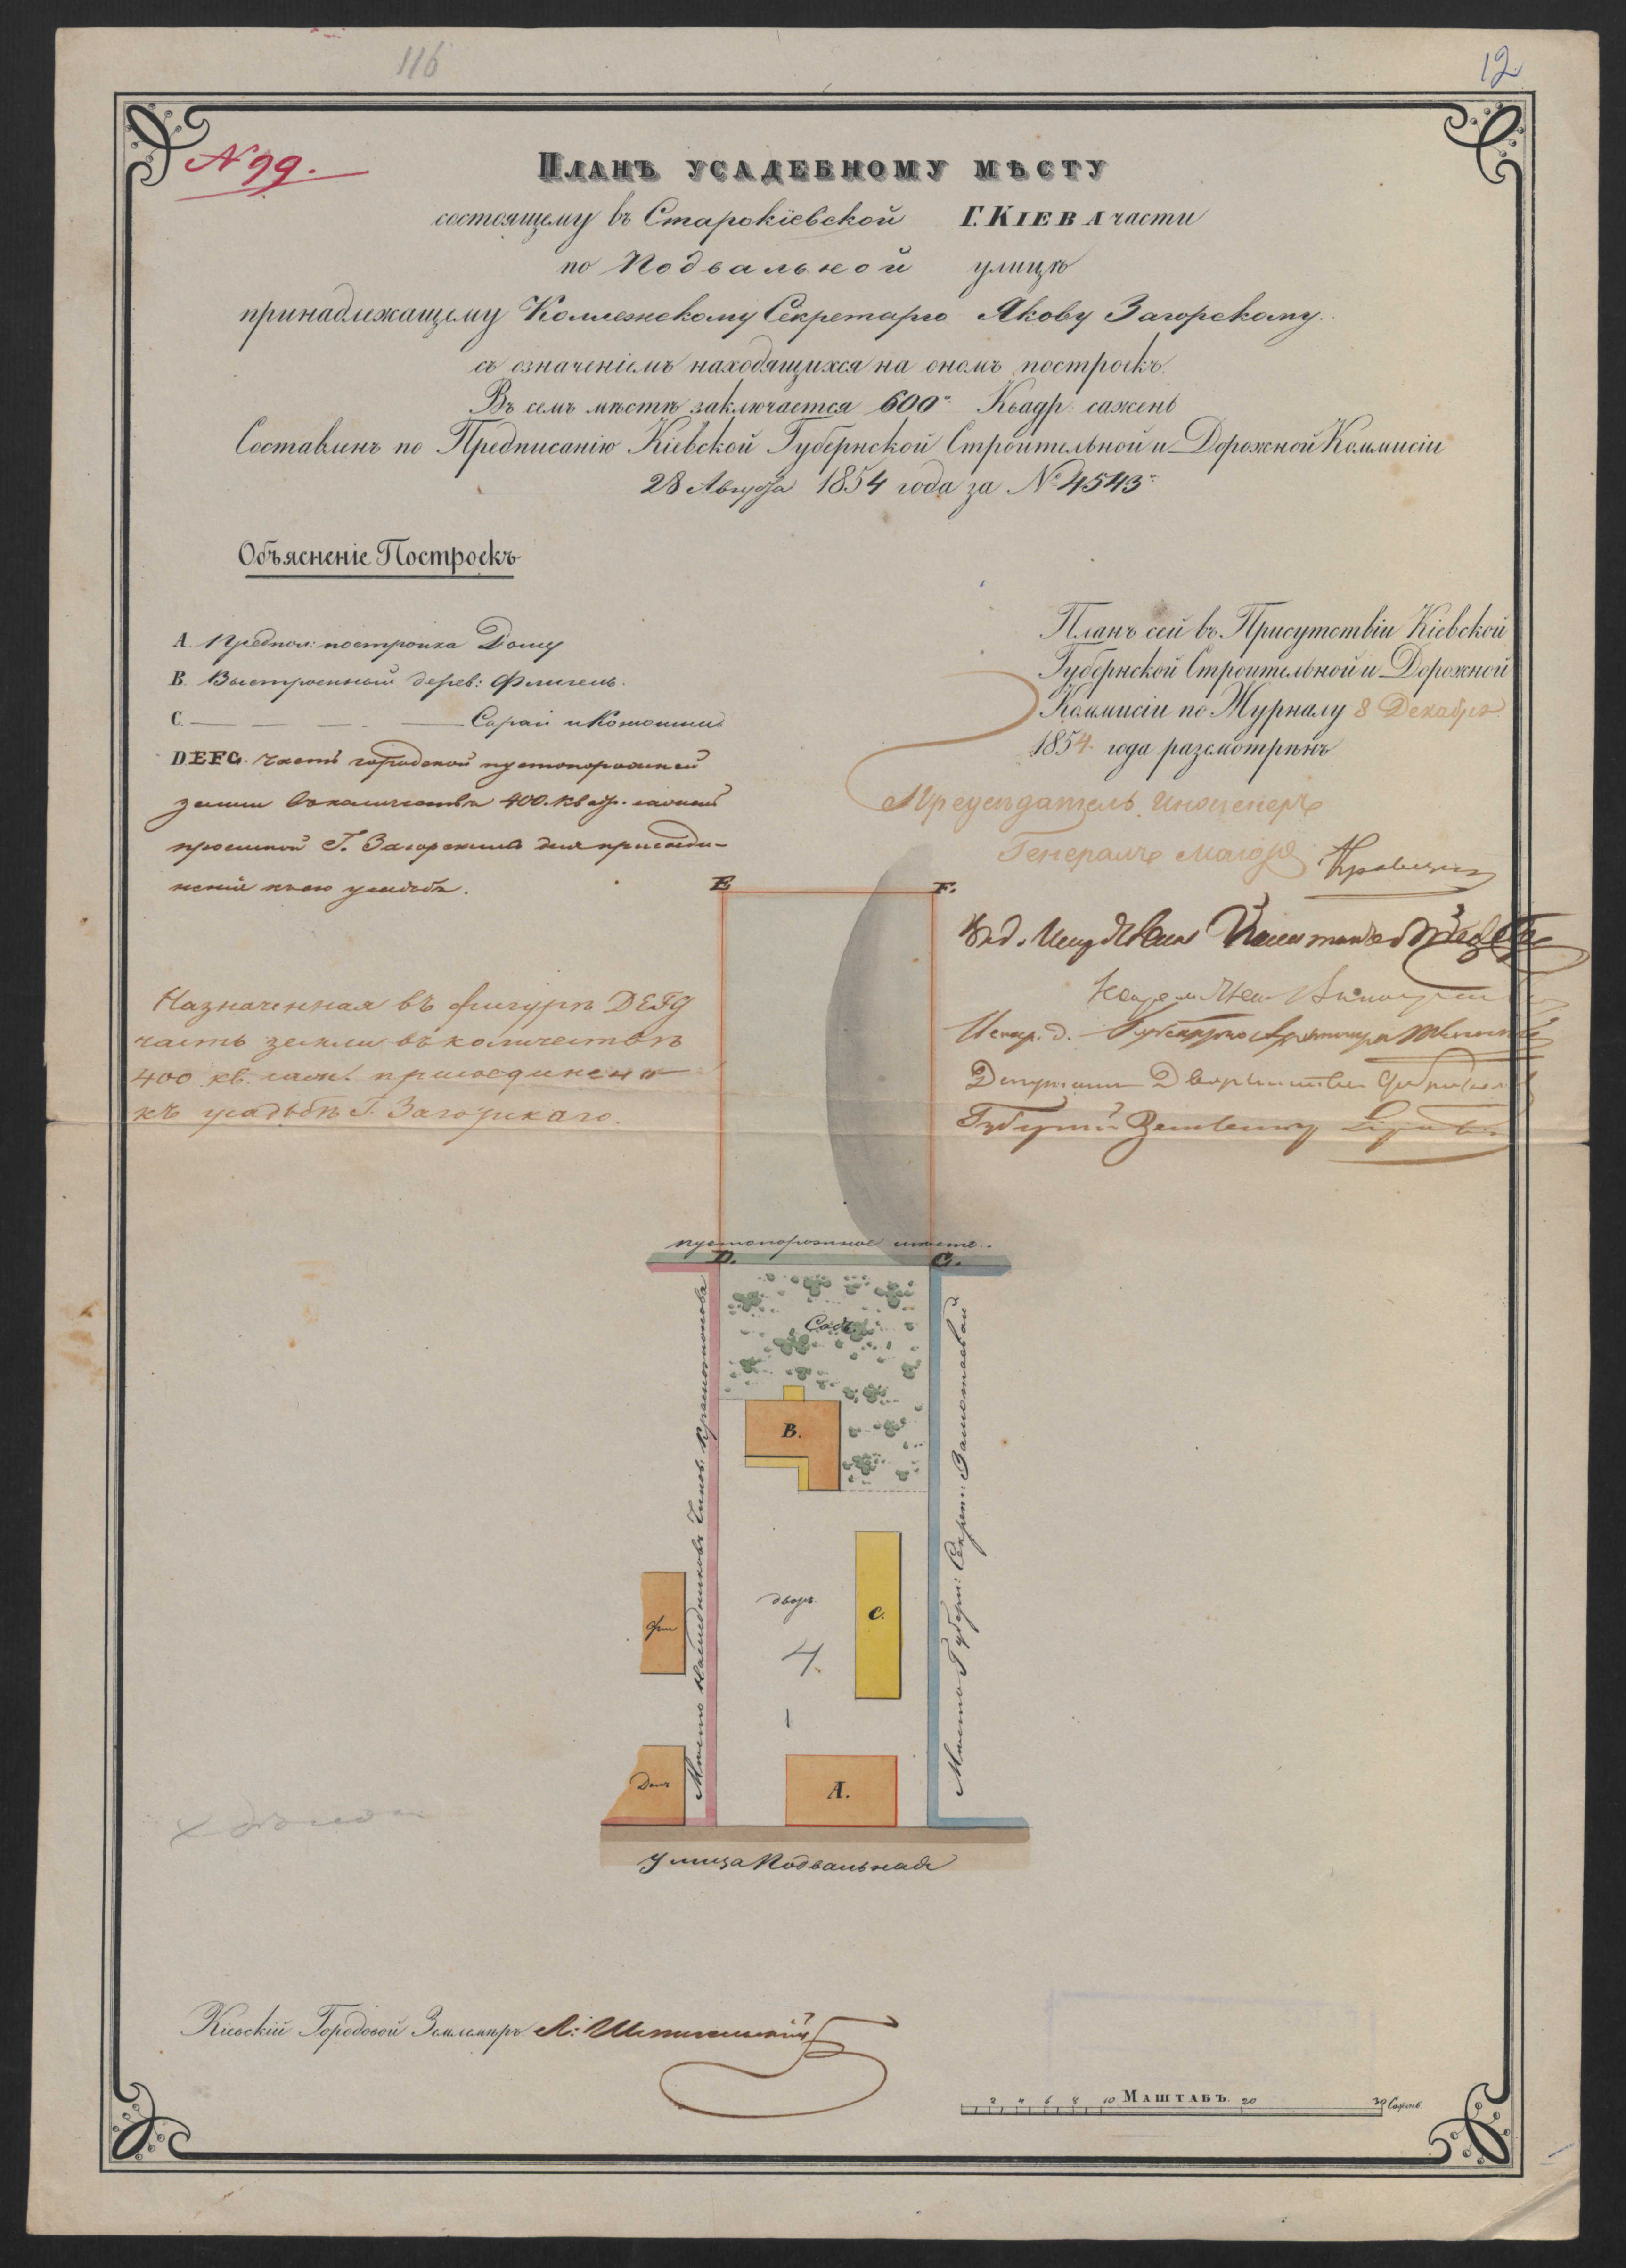 116
12
N 99.
Планъ усадебному мѣсту
состоящему въ Старокіевской Г. Кіева части
по Подвальной улицѣ
принадлежащему Коллежскому Секретарю Якову Загорскому.
съ означеніемъ находящихся на ономъ построекъ.
Въ семъ мѣстѣ заключается 600 Квадр: сажень
Составленъ по Предписанію Кіевской Губернской Строительной и Дорожной Коммисіи
28 Августа 1854 года за № 4543
Объясненіе Построекъ
A. Предпол: постройка Дому
B. Выстроенный дерев: Флигель.
C. Сарай и Конюшни
DEFG. Часть городской пустопорожней
земли въ количествѣ 400. квадр. сажень
просимой Г. Загорскимъ для присоеди-
ненія къ его усадьбѣ.
Планъ сей въ Присутствіи Кіевской
Губернской Строительной и Дорожной
Коммисіи по Журналу 8 Декабря
1854 года разсмотрѣнъ
Предсѣдатель Инженеръ
Генералъ Маіоръ
Назначенная въ фигурѣ DEFG
часть земли въ количествѣ
400 кв. саж. присоединена
къ усадьбѣ Г. Загорскаго.
Исп. д. Губернскаго Архитектора
Депутатъ Дворянства
Губерній Землемѣръ
E.
F.
пустопорожнее мѣсто.
D.
G.
Садъ
B.
Мѣсто Наслѣдниковъ Чинов.
Мѣсто Губерн: Секрет:
дворъ
C.
Фли
4.
Домъ
A.
Улица Подвальная
Кіевскій Городовой Землемѣръ
2 4 6 8 10 Маштабъ. 20 30 Сажень